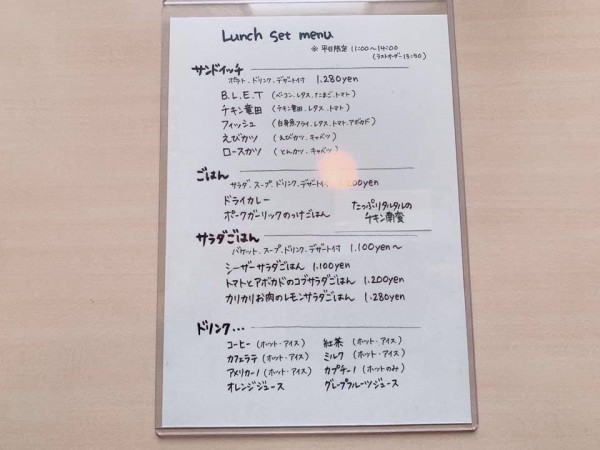 Lunch set menu
※ 平日限定 11:00～14:00
(ラストオーダー 13:50)
サンドイッチ
ポテト、ドリンク、デザート付 1.280yen
B.L.E.T (ベーコン、レタス、たまご、トマト)
チキン竜田 (チキン竜田、レタス、トマト)
フィッシュ (白身魚フライ、レタス、トマト、アボカド)
えびカツ (えびカツ、キャベツ)
ロースカツ (とんカツ、キャベツ)
ごはん
サラダ、スープ、ドリンク、デザート付 200yen
ドライカレー
ポークガーリックのっけごはん
たっぷりタルタルの
チキン南蛮
サラダごはん
バケット、スープ、ドリンク、デザート付 1.100yen～
シーザーサラダごはん 1.100yen
トマトとアボカドのコブサラダごはん 1.200yen
カリカリお肉のレモンサラダごはん 1.280yen
ドリンク…
コーヒー (ホット・アイス) 紅茶 (ホット・アイス)
カフェラテ (ホット・アイス) ミルク (ホット・アイス)
アメリカーノ (ホット・アイス) カプチーノ (ホットのみ)
オレンジジュース グレープフルーツジュース